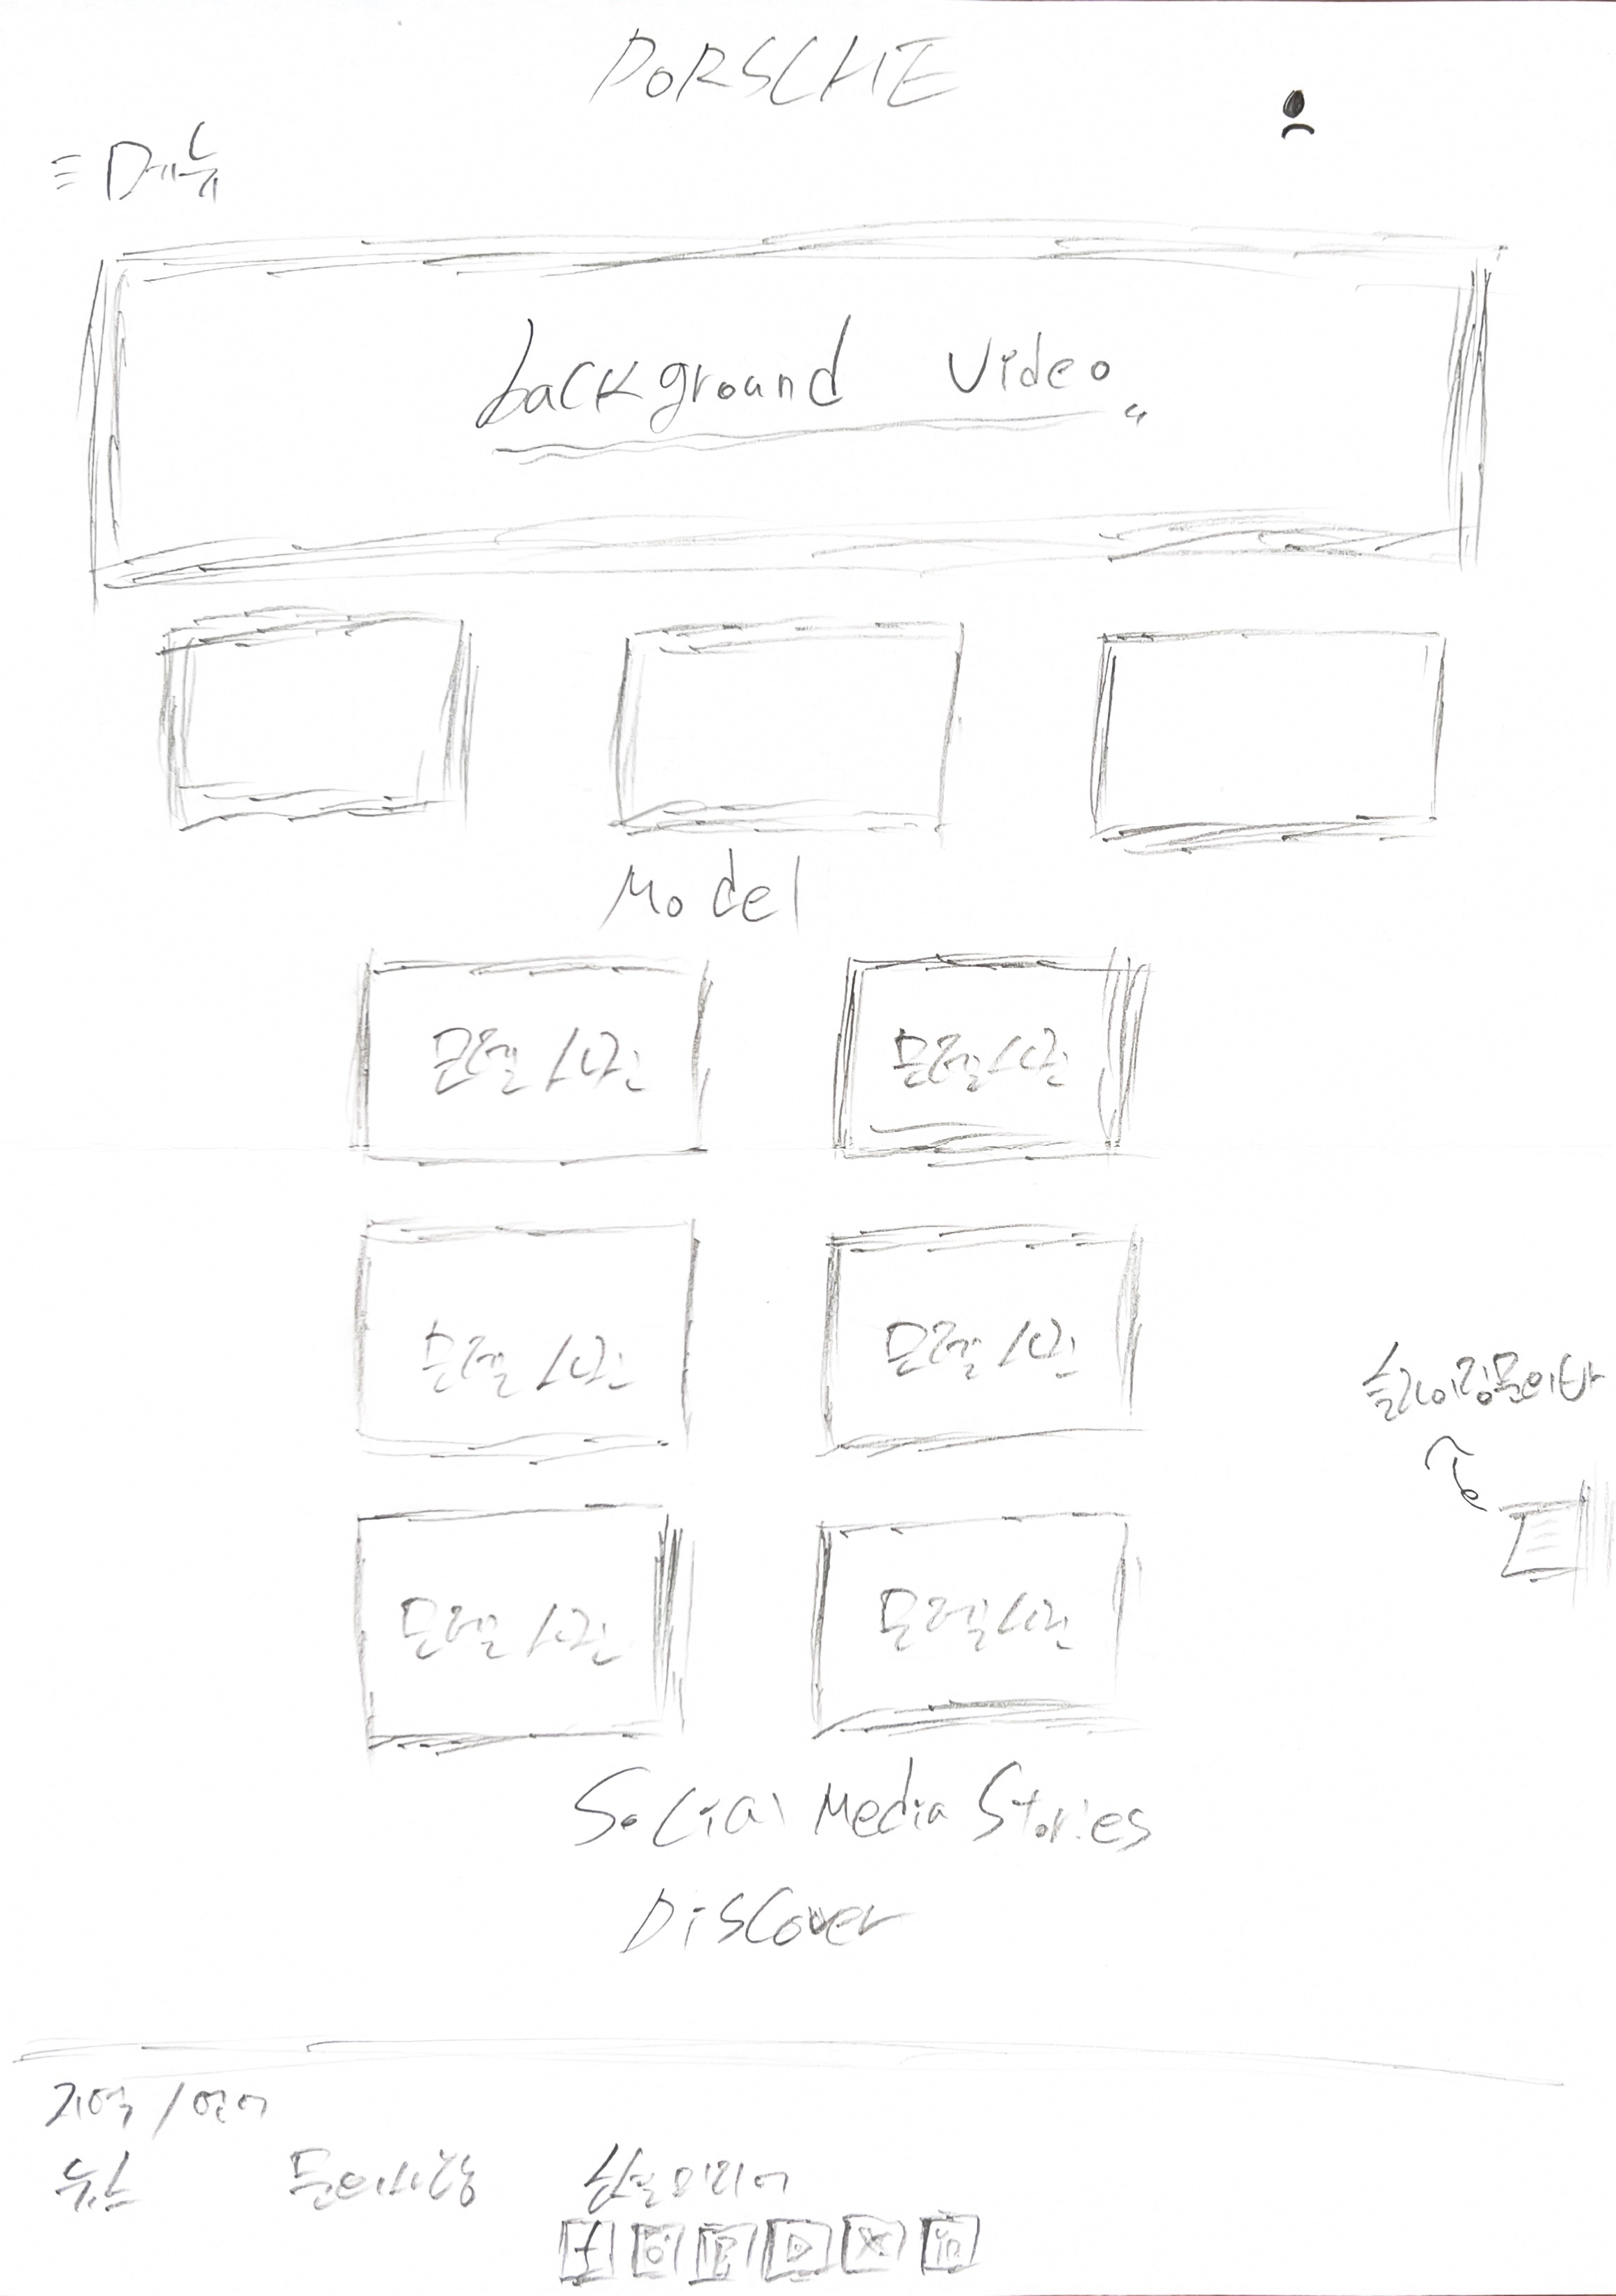 PORSCHE
메뉴
background video
Model
모델 사진
모델 사진
모델 사진
모델 사진
모델 사진
모델 사진
슬라이딩문의바
Social Media Stories
Discover
지역 / 언어
뉴스 문의사항 소셜미디어
f P X in